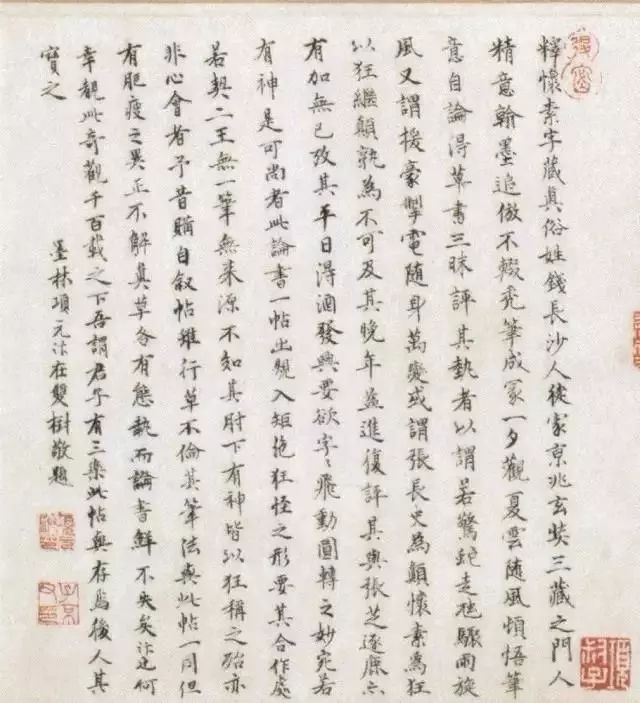 釋懷素字藏真俗姓錢長沙人徙家京兆玄奘三藏之門人
精意翰墨追倣不輟禿筆成冢一夕觀夏雲隨風頓悟筆
意自論得草書三昧評其執者以謂若驚蛇走虺驟雨旋
風又謂援豪掣電隨身萬變或謂張長史為顛懷素為狂
以狂繼顛孰為不可及其晚年益進復評其與張芝逐鹿亦
有加無已攷其平日得酒發興要欲字〻飛動圓轉之妙宛若
有神是可尚者此論書一帖出規入矩絶狂怪之形要其合作處
若契二王無一筆無来源不知其肘下有神皆以狂稱之殆亦
非心會者予昔購自叙帖雖行草不倫其筆法與此帖一同但
有肥瘦之異正不解真草各有態執而論書鮮不失矣汴何
幸覩此奇觀千百載之下吾謂君子有三樂此帖與存焉後人其
寶之
墨林項元汴在雙樹敬題